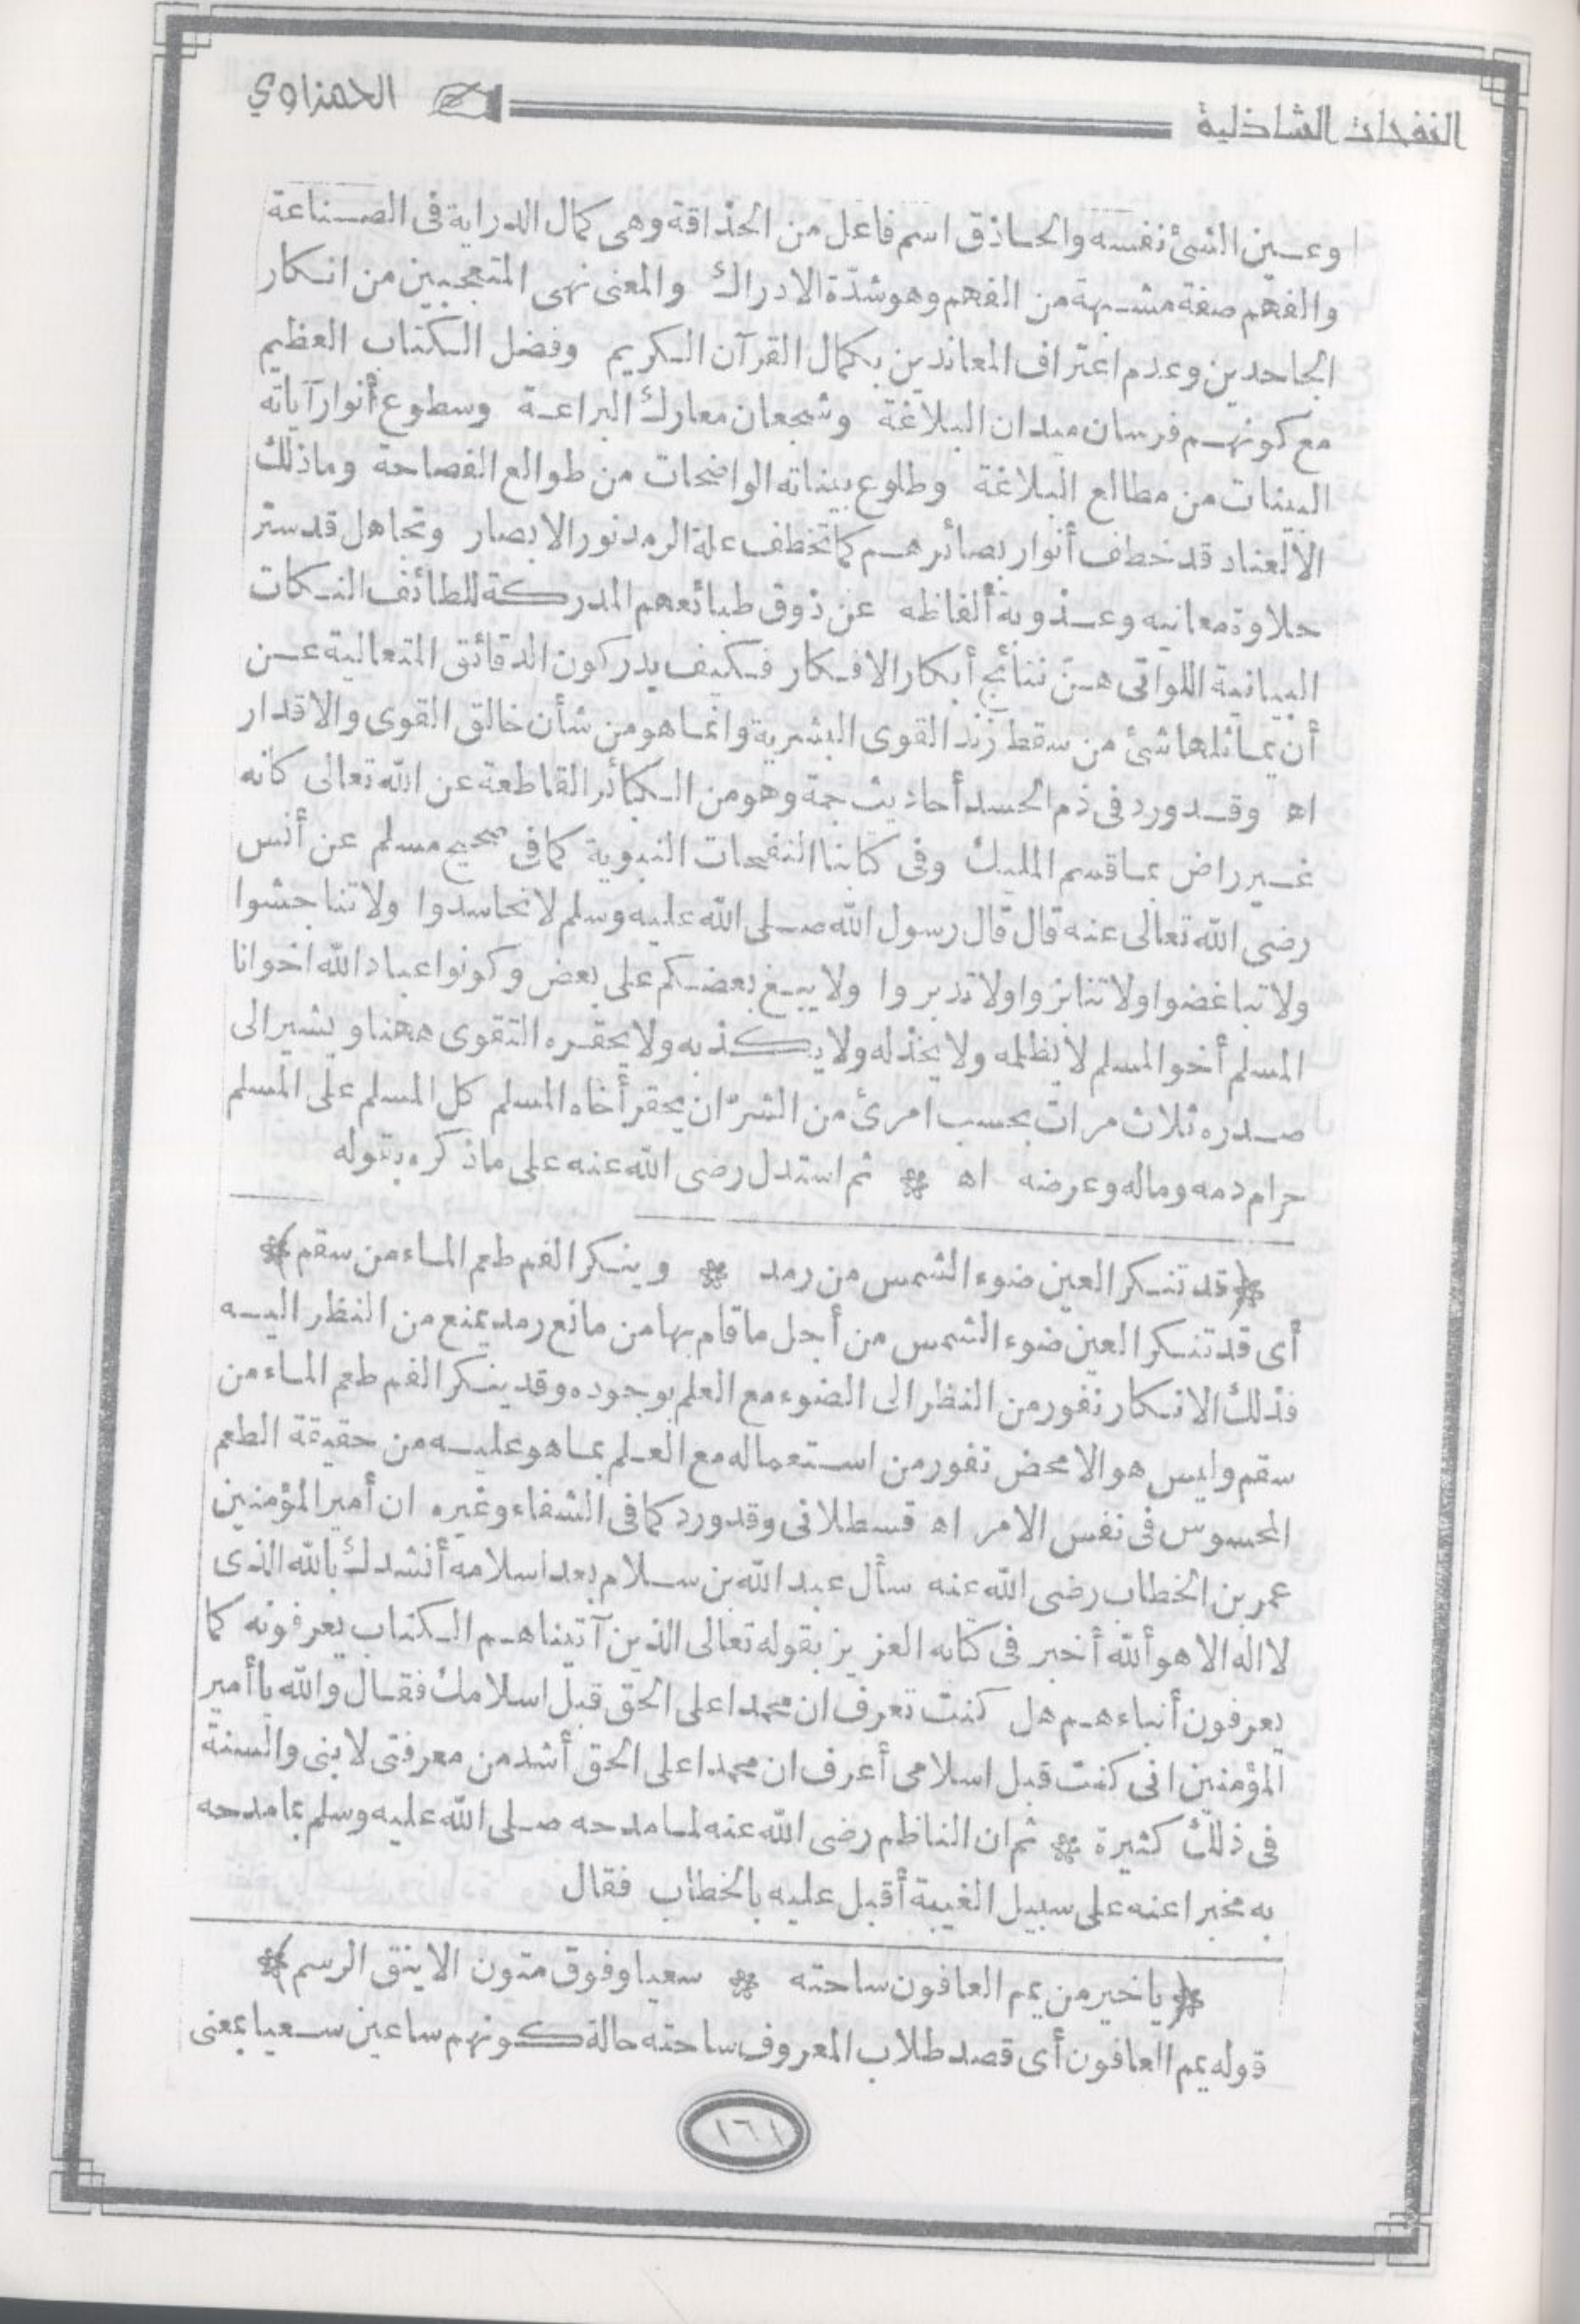 النفحات الشاذلية
الحمزاوي
وعـين الشئ نفسه والحـاذق اسم فاعل من الحذاقة وهى كمال الدراية فى الصـناعة
والفهم صفة مشـبهة من الفهم وهو شدّة الادراك والمعنى نهى المتعجبين من انـكار
الجاحدين وعدم اعتراف المعاندين بكمال القرآن الـكريم وفضل الـكتاب العظيم
مع كونهـم فرسان ميدان البلاغة وشجعان معارك البراعـة وسطوع أنوار آياته
البينات من مطالع البلاغة وطلوع بيناته الواضحات من طوالع الفصاحة وماذلك
الالعناد قد خطف أنوار بصائرهـم كما تخطف علة الرمد نور الابصار وتجاهل قد ستر
حلاوة معانيه وعـذوبة ألفاظه عن ذوق طبائعهم المدركة للطائف النـكات
البيانية اللواتى هـنّ نتائج أبكار الافـكار فـكيف يدركون الدقائق المتعالية عـن
أن يمـاثلها شئ من سقط زند القوى البشرية وانمـا هو من شأن خالق القوى والاقدار
اه وقـد ورد فى ذم الحسد أحاديث جمة وهو من الـكبائر القاطعة عن الله تعالى كانه
غـير راض بمـا قسم المليك وفى كتابنا النفحات النبوية كما فى صحيح مسلم عن أنس
رضى الله تعالى عنه قال قال رسول الله صـلى الله عليه وسلم لا تحاسدوا ولا تناجشوا
ولا تباغضوا ولا تنابزوا ولا تدبروا ولا يبـغ بعضـكم على بعض وكونوا عباد الله اخوانا
المسلم أخو المسلم لا يظلمه ولا يخذله ولا يـكذبه ولا يحقـره التقوى ههنا ويشير الى
صـدره ثلاث مرات بحسب امرئ من الشرّ ان يحقر أخاه المسلم كل المسلم على المسلم
حرام دمه وماله وعرضه اه * ثم استدل رضى الله عنه على ماذكره بقوله
﴿قد تنـكر العين ضوء الشمس من رمد * وينـكر الفم طعم المـاء من سقم﴾
أى قد تنـكر العين ضوء الشمس من أجل ما قام بها من مانع رمد يمنع من النظر اليـه
فذلك الانـكار نفور من النظر الى الضوء مع العلم بوجوده وقد ينـكر الفم طعم المـاء من
سقم وليس هو الا محض نفور من اسـتعماله مع العـلم بمـا هو عليـه من حقيقة الطعم
المحسوس فى نفس الامر اه قسطلانى وقد ورد كما فى الشفاء وغيره ان أمير المؤمنين
عمر بن الخطاب رضى الله عنه سأل عبد الله بن سـلام بعد اسلامه أنشدك بالله الذى
لا اله الا هو ألله أخبر فى كتابه العزيز بقوله تعالى الذين آتيناهـم الـكتاب يعرفونه كما
يعرفون أبناءهـم هل كنت تعرف ان محمدا على الحق قبل اسلامك فقـال والله يا أمير
المؤمنين انى كنت قبل اسلامى أعرف ان محمدا على الحق أشد من معرفتى لابنى والسنة
فى ذلك كثيرة * ثم ان الناظم رضى الله عنه لمـا مدحه صـلى الله عليه وسلم بما مدحه
به مخبرا عنه على سبيل الغيبة أقبل عليه بالخطاب فقال
﴿يا خير من يمم العافون ساحته * سعيا وفوق متون الاينق الرسم﴾
قوله يمم العافون أى قصد طلاب المعروف ساحته حالة كونهم ساعين سـعيا بمعنى
١٦١